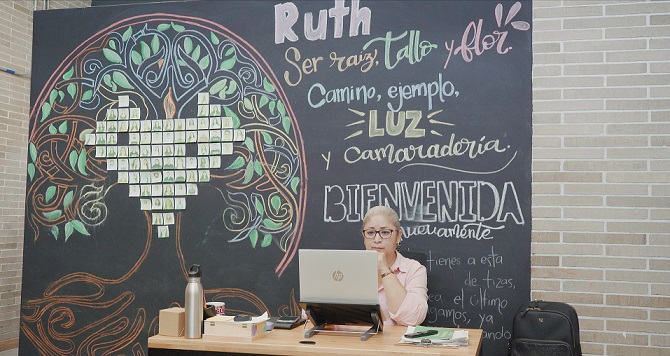 Ruth
Ser raíz, Tallo y flor.
Camino, ejemplo,
LUZ
y Camaradería.
BIENVENIDA
nuevamente
tienes a esta
de tizas,
el último
ya
hp